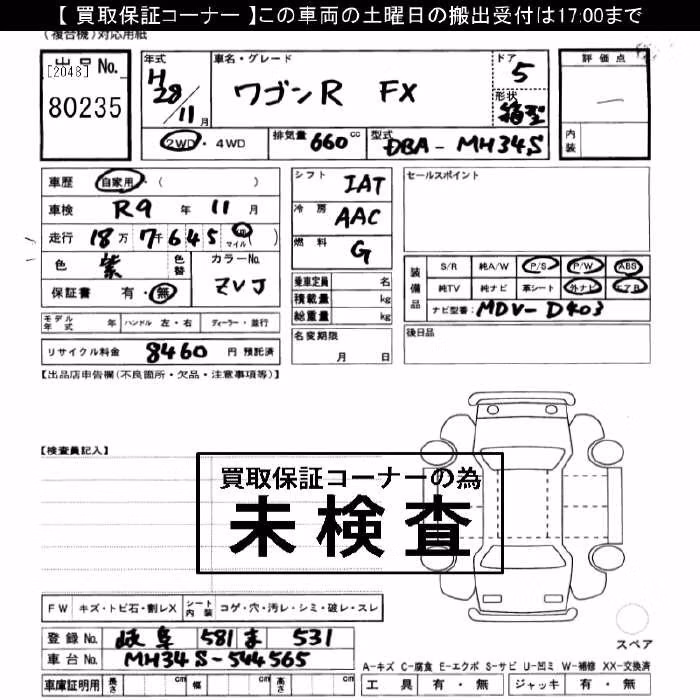 【 買取保証コーナー 】この車両の土曜日の搬出受付は17:00まで
(複合機)対応用紙
出品No.
[2048]
80235
年式
H28/11月
車名・グレード
ワゴンR FX
ドア
5
形状
箱型
評価点
内装
2WD・4WD
排気量 660 cc
型式 DBA-MH34S
車歴 自家用・( )
車検 R9 年 11 月
走行 18万 7千 6 4 5 マイル ( )
色 紫 色替
カラーNo. ZVJ
保証書 有・無
モデル年式 年 ハンドル 左・右 ディーラー・並行
リサイクル料金 8460 円 預託済
シフト IAT
冷房 AAC
燃料 G
乗車定員 名
積載量 kg
総重量 kg
名変期限
月 日
セールスポイント
装備品
S/R 純A/W P/S P/W ABS
純TV 純ナビ 革シート 外ナビ エアB
ナビ型番: MDV-D403
後日品
【出品店申告欄(不良箇所・欠品・注意事項等)】
【検査員記入】
買取保証コーナーの為
未検査
FW キズ・トビ石・割レX シート内装 コゲ・穴・汚レ・シミ・破レ・スレ
登録No. 岐阜 581 ま 531
車台No. MH34S-544565
車庫証明用 長さ cm 幅 cm 高さ cm
スペア
A-キズ C-腐食 E-エクボ S-サビ U-凹ミ W-補修 XX-交換済
工具 有・無 ジャッキ 有・無